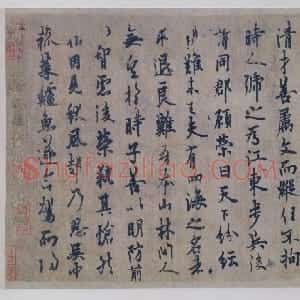 清才善屬文而縱任不拘
時人號之為江東步兵後
謂同郡顧榮曰天下紛紜
禍難未已夫有四海之名者求
退良難吾本山林間人
無望於時子善以明防前
以智慮後榮執其愴然
翰因見秋風起乃思吳中
菰菜鱸魚遂命駕而歸